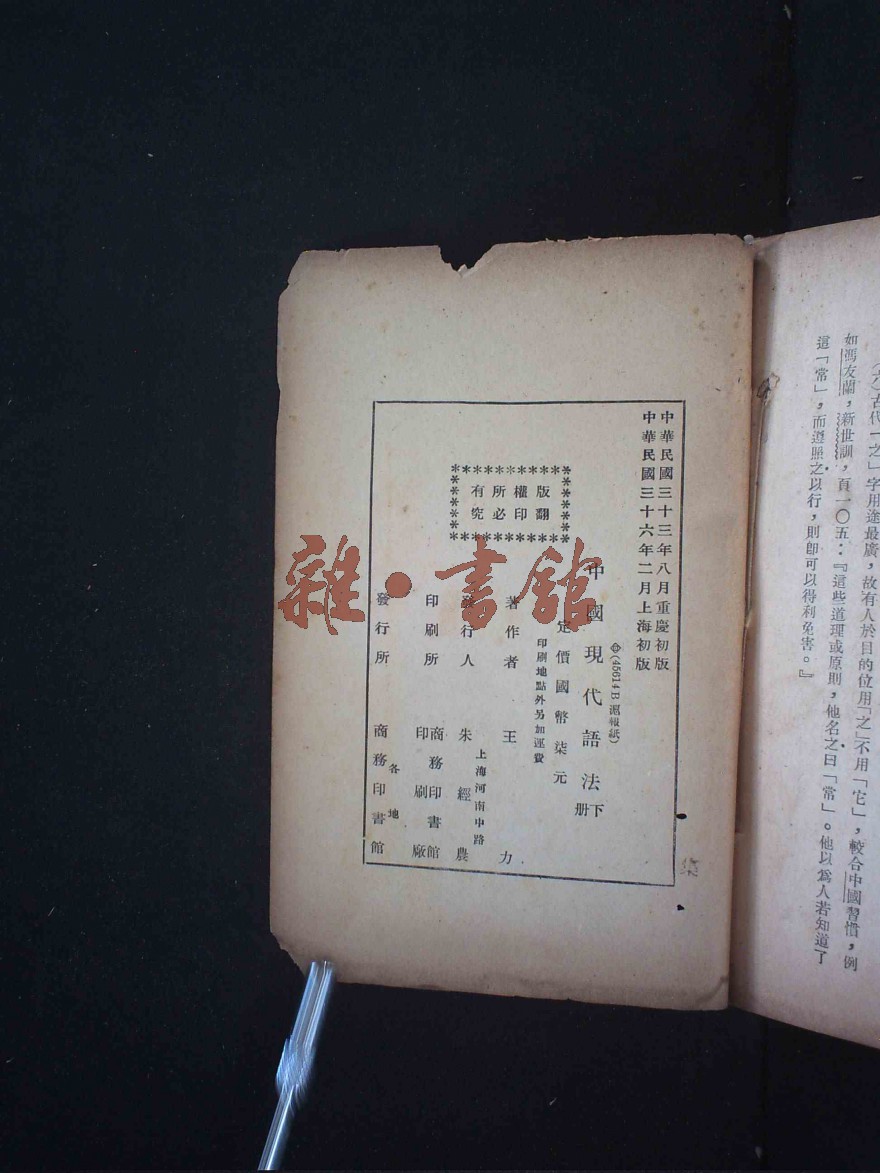 (六)古代「之」字用途最廣，故有人於目的位用「之」不用「它」，較合中國習慣，例
如馮友蘭，新世訓，頁一〇五：『這些道理或原則，他名之曰「常」。他以爲人若知道了
這「常」，而遵照之以行，則卽可以得利免害。』
中華民國三十三年八月重慶初版
中華民國三十六年二月上海初版
(45614B滬報紙)
中國現代語法下册
定價國幣柒元
印刷地點外另加運費
版權所有
翻印必究
著作者 王力
上海河南中路
發行人 朱經農
印刷所 商務印書館
印刷廠
各地
發行所 商務印書館
雜·書館